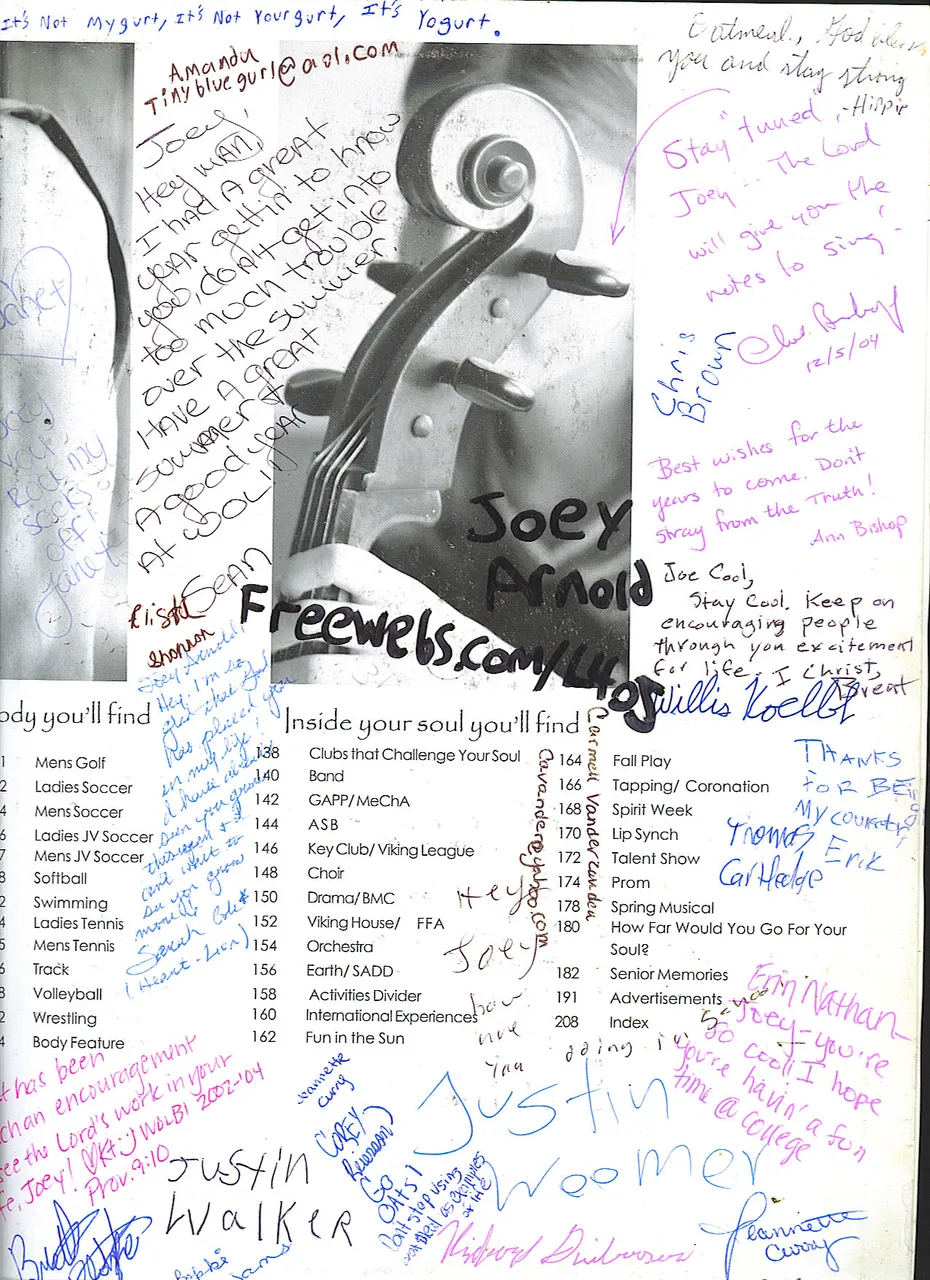 It's Not Mygurt, It's Not Yourgurt, It's Yogurt.
Amanda
Tinybluegurl@aol.com
Oatmeal, God bless
you and stay strong
-Hippie
Joey,
Hey mAN,
I had A great
year gettin' to know
you, don't get into
too much trouble
over the summer.
Have A great
summer &
A good year
At WOLBI
Sean
Stay "tuned",
Joey - The Lord
will give you the
notes to sing -
12/5/04
Chris
Brown
Best wishes for the
years to come. Don't
stray from the Truth!
Ann Bishop
Joey
Arnold
Freewebs.com/L4OJ
Joe Cool,
Stay Cool. Keep on
encouraging people
through you excitement
for life. I Christ,
Brent
Willis
you
Rock my
socks
off!
Janet
Shannon
Joey Arnold,
Hey! I'm so
glad that God
has placed you
in my life!
seen you grow
this year &
can't wait to
see you grow
more!
Sarah
(Heart-Lion)
ody you'll find
Mens Golf
Ladies Soccer
Mens Soccer
Ladies JV Soccer
Mens JV Soccer
Softball
Swimming
Ladies Tennis
Mens Tennis
Track
Volleyball
Wrestling
Body Feature
Inside your soul you'll find
138 Clubs that Challenge Your Soul
140 Band
142 GAPP/ MeChA
144 ASB
146 Key Club/ Viking League
148 Choir
150 Drama/BMC
152 Viking House/ FFA
154 Orchestra
156 Earth/ SADD
158 Activities Divider
160 International Experiences
162 Fun in the Sun
164 Fall Play
166 Tapping/ Coronation
168 Spirit Week
170 Lip Synch
172 Talent Show
174 Prom
178 Spring Musical
180 How Far Would You Go For Your
Soul?
182 Senior Memories
191 Advertisements
208 Index
Carmell Vanderzanden
Cavandere@yahoo.com
Thanks
for Being
My
Erik
Thomas
Cartledge
Hey
Joey
how
are
you doing
Erin Nathan-
Joey-you're
so cool! I hope
you're havin' a fun
time @ college
t has been
ch an encouragement
ee the Lord's work in your
fe, Joey! WOLBI 2002-'04
Prov. 9:10
Jeannette
Curry
Corey
Go
Oats!
Dont stop using
Justin
Woomer
Justin
Walker
Richard
Jeannette
Curry